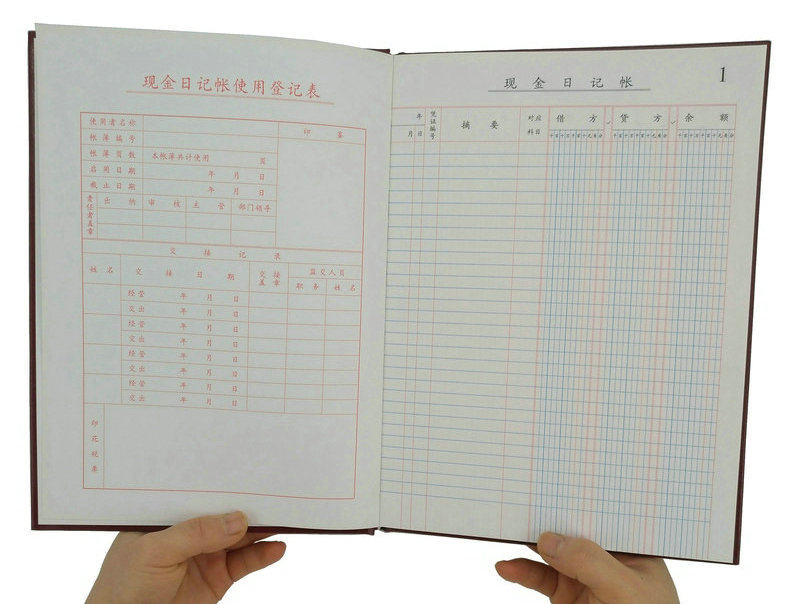 现金日记帐使用登记表
使用者名称
印 鉴
帐簿编号
帐簿页数 本帐簿共计使用 页
启用日期 年 月 日
截止日期 年 月 日
责任者盖章 出 纳 审 核 主 管 部门领导
交 接 记 录
姓 名 交 接 日 期 交 接 盖 章 监交人员
职 务 姓 名
经管 年 月 日
交出 年 月 日
经管 年 月 日
交出 年 月 日
经管 年 月 日
交出 年 月 日
经管 年 月 日
交出 年 月 日
印花税票
现 金 日 记 帐
1
年 凭证编号 摘 要 对应科目 借 方 ✓ 贷 方 ✓ 余 额
月 日 千百十万千百十元角分 千百十万千百十元角分 千百十万千百十元角分